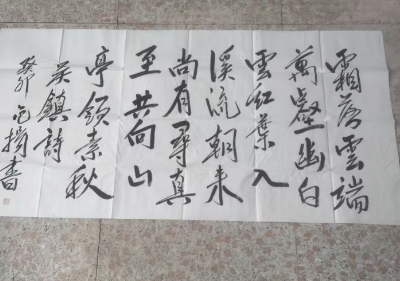 霜落雲端
萬壑幽白
雲紅葉入
溪流朝来
尚有尋真
至共向山
亭領素秋
吴鎮詩
癸卯 書